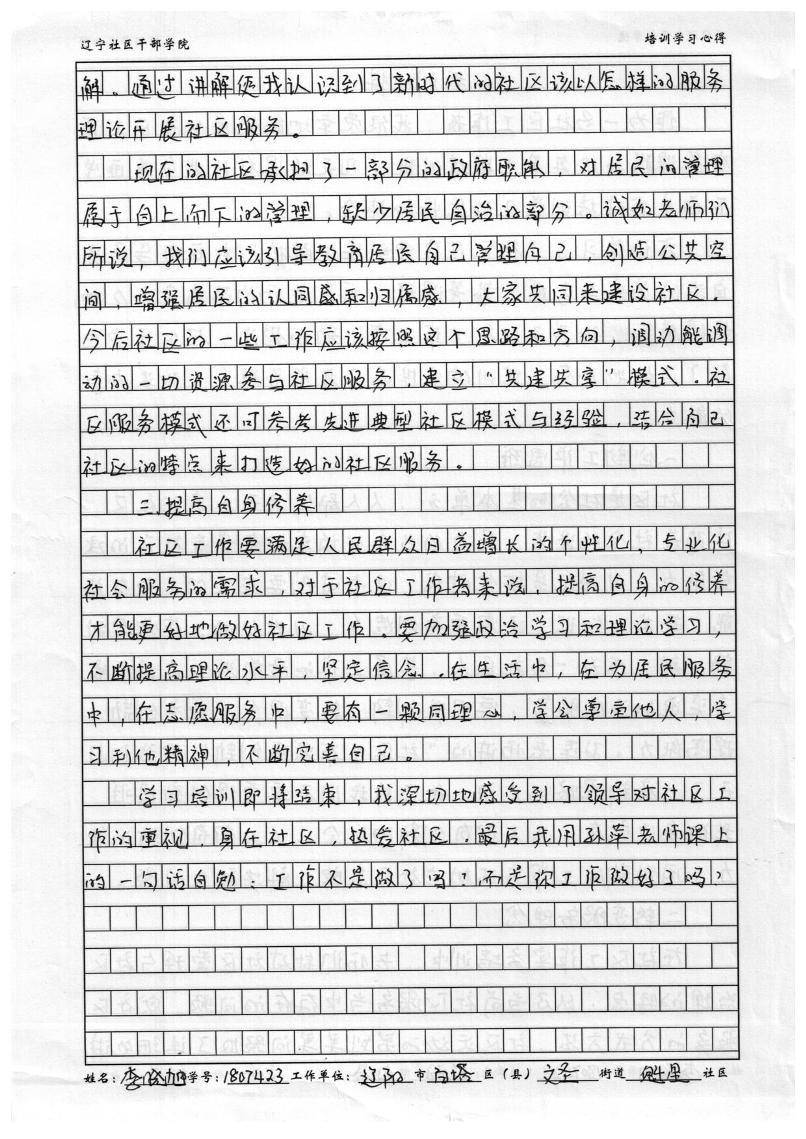 辽宁社区干部学院 培训学习心得
解。通过讲解使我认识到了新时代的社区该以怎样的服务
理论开展社区服务。
现在的社区承担了一部分的政府职能，对居民的管理
属于自上而下的管理，缺少居民自治的部分。诚如老师们
所说，我们应该引导教育居民自己管理自己，创造公共空
间，增强居民的认同感和归属感，大家共同来建设社区。
今后社区的一些工作应该按照这个思路和方向，调动能调
动的一切资源参与社区服务，建立“共建共享”模式。社
区服务模式还可参考先进典型社区模式与经验，结合自己
社区的特点来打造好的社区服务。
三.提高自身修养
社区工作要满足人民群众日益增长的个性化，专业化
社会服务的需求，对于社区工作者来说，提高自身的修养
才能更好地做好社区工作。要加强政治学习和理论学习，
不断提高理论水平，坚定信念。在生活中，在为居民服务
中，在志愿服务中，要有一颗同理心，学会尊重他人，学
习利他精神，不断完善自己。
学习培训即将结束，我深切地感受到了领导对社区工
作的重视，身在社区，热爱社区。最后我用孙萍老师课上
的一句话自勉：工作不是做了吗？而是你工作做好了吗？
姓名：李 旭 学号：1807423 工作单位：辽阳 市 白塔 区（县） 文圣 街道 魁星 社区